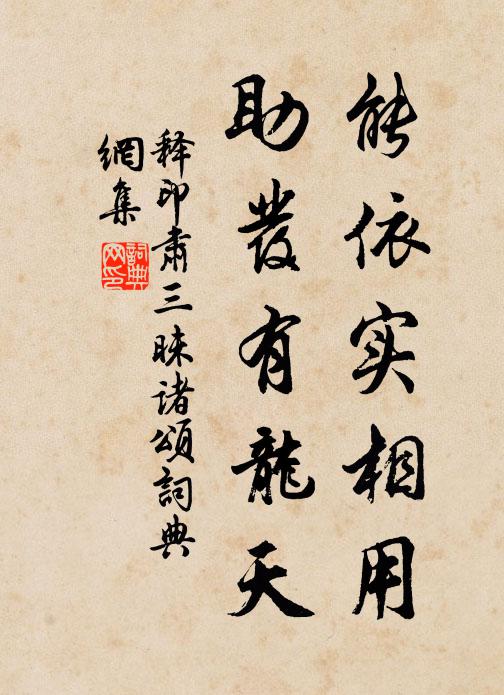 能依实相用
助發有龍天
释印肅三昧诸頌詞典
網集
詞典
网印